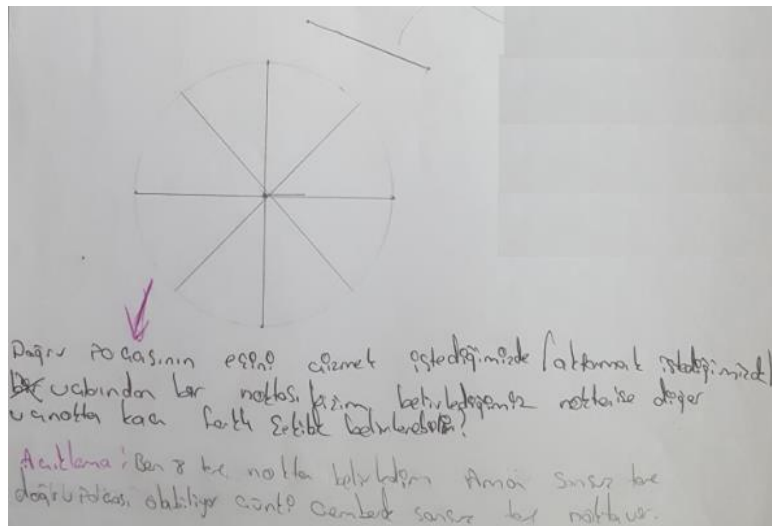 Doğru Pocasının eşini çizmek istediğimizde (aktarmak istediğimizde)
ucundan bir noktası bizim belirlediğimiz nokta ise diğer
uç nokta kaç farklı şekilde belirlenebilir?
Açıklama: Ben 8 tane nokta belirledim Ama sonsuz tane
doğru Pdcası olabiliyor çünkü Cemberde sonsuz tane nokta var.